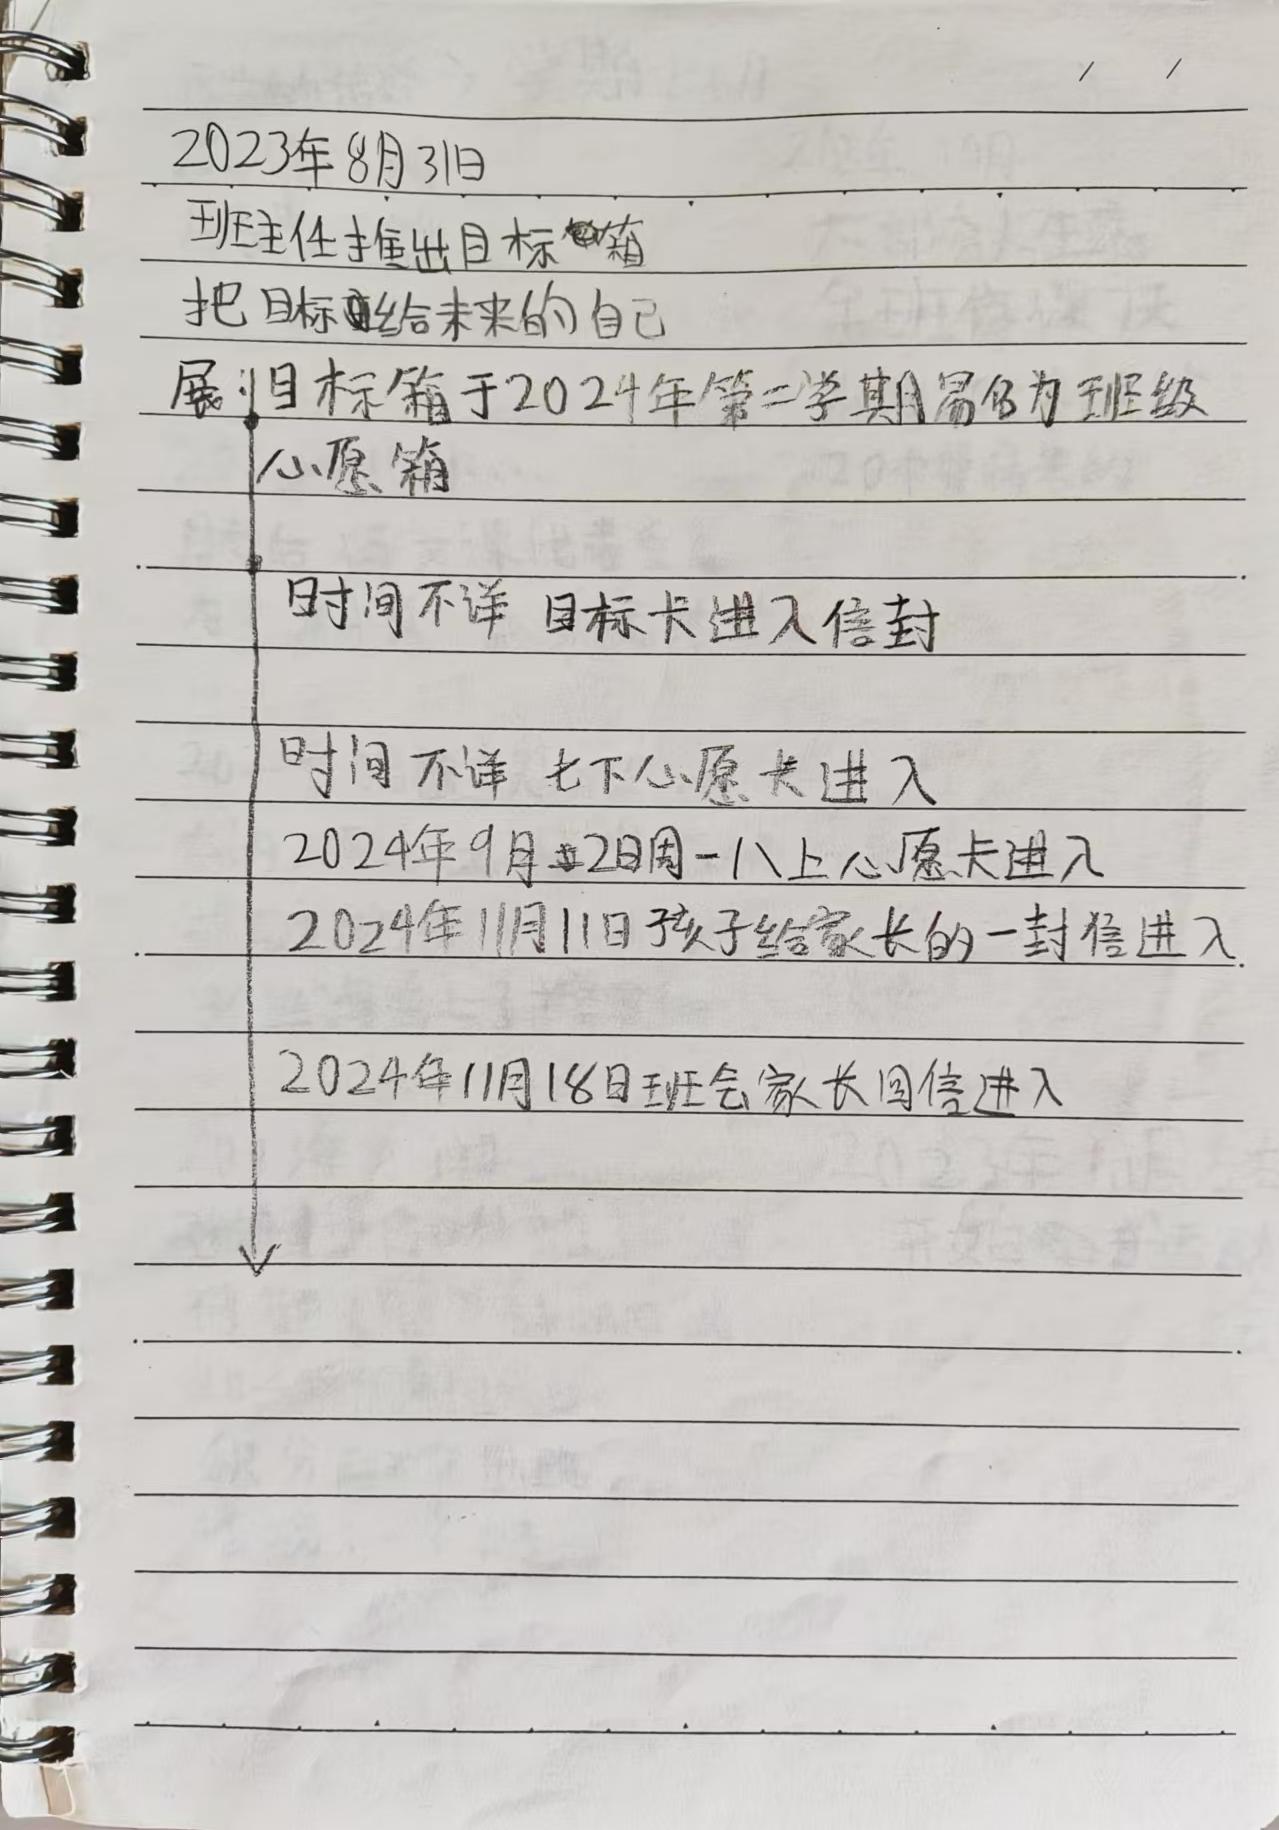 2023年8月31日
班主任推出目标箱
把目标给未来的自己
展:旧目标箱于2024年第二学期易名为班级
心愿箱
时间不详 目标卡进入信封
时间不详 七下心愿卡进入
2024年9月2日周一八上心愿卡进入
2024年11月11日孩子给家长的一封信进入
2024年11月18日班会家长回信进入